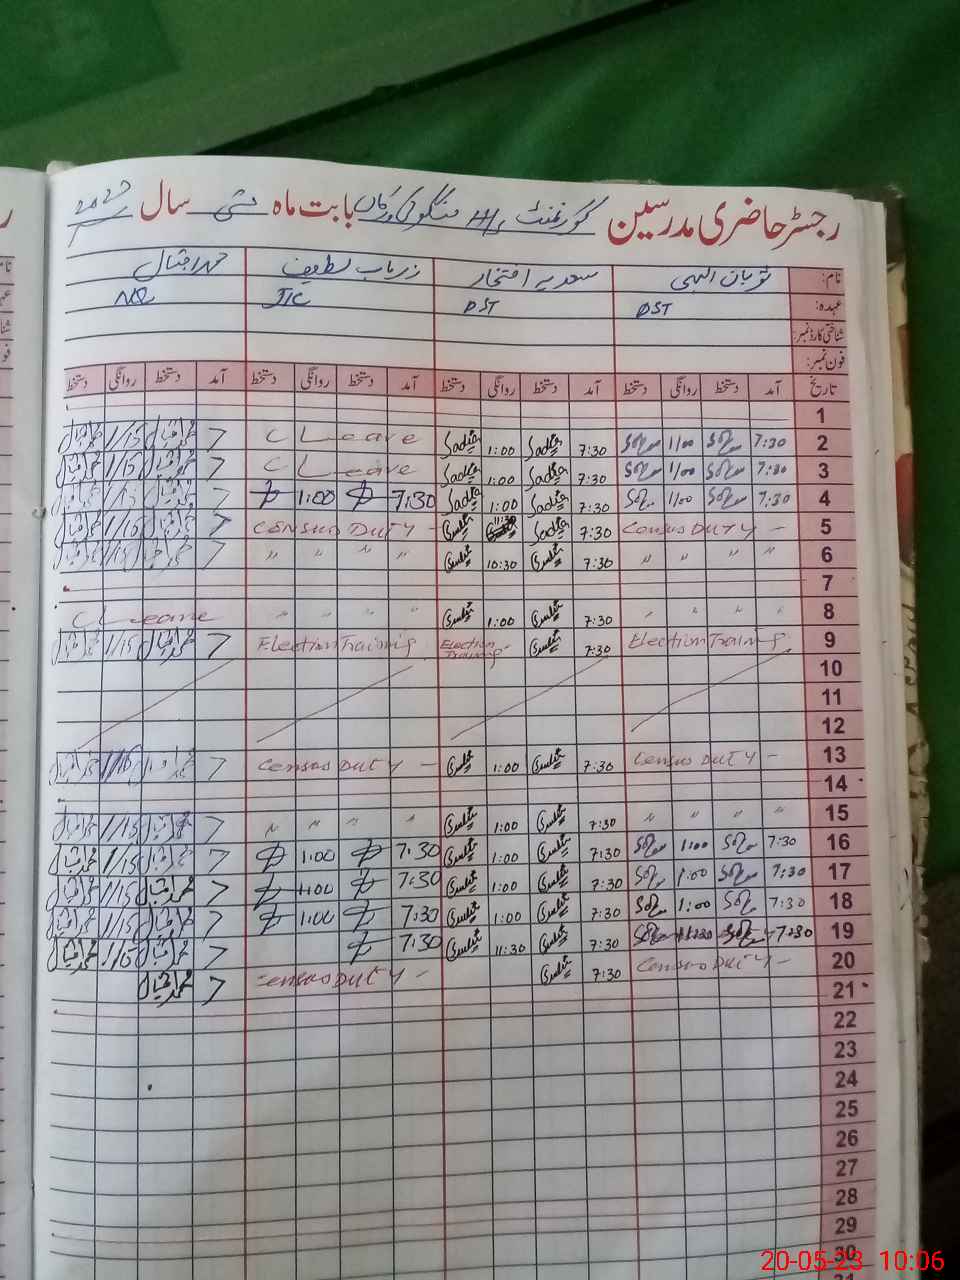 رجسٹر حاضری مدرسین گورنمنٹ H/S بابت ماہ مئی سال 2023
نام: ثوبان الہی سعدیہ افتخار زریاب لطیف محمد اقبال
عہدہ: DST DST JIC NQ
شناختی کارڈ نمبر:
فون نمبر:
تاریخ آمد دستخط روانگی دستخط آمد دستخط روانگی دستخط آمد دستخط روانگی دستخط آمد دستخط روانگی دستخط
1
2 7:30 1/00 7:30 Sadia 1:00 Sadia C Leave 7 محمد اقبال 1/15 محمد اقبال
3 7:30 1/00 7:30 Sadia 1:00 Sadia C Leave 7 محمد اقبال 1/15 محمد اقبال
4 7:30 1/00 7:30 Sadia 1:00 Sadia 7:30 1:00 7 محمد اقبال 1/15 محمد اقبال
5 Census DUTY - 7:30 Sadia 11:30 CENSUS DUTY - 7 محمد اقبال 1/15 محمد اقبال
6 〃 〃 〃 〃 7:30 10:30 〃 〃 〃 〃 7 1/15
7
8 〃 〃 〃 〃 7:30 1:00 〃 〃 〃 〃 C Leave
9 Election Training 7:30 Election Training Election Training 7 محمد اقبال 1/15 محمد اقبال
10
11
12
13 Census DUTY - 7:30 1:00 Census DUTY - 7 1/15
14
15 〃 〃 〃 〃 7:30 1:00 〃 〃 〃 〃 7 محمد اقبال 1/15 محمد اقبال
16 7:30 1:00 7:30 1:00 7:30 1:00 7 محمد اقبال 1/15 محمد اقبال
17 7:30 1:00 7:30 1:00 7:30 1:00 7 محمد اقبال 1/15 محمد اقبال
18 7:30 1:00 7:30 1:00 7:30 1:00 7 محمد اقبال 1/15 محمد اقبال
19 7:30 11:30 7:30 11:30 7:30 7 محمد اقبال 1/15 محمد اقبال
20 Census DUTY - 7:30 Census DUTY - 7 محمد اقبال
21
22
23
24
25
26
27
28
29
30
20-05-23 10:06